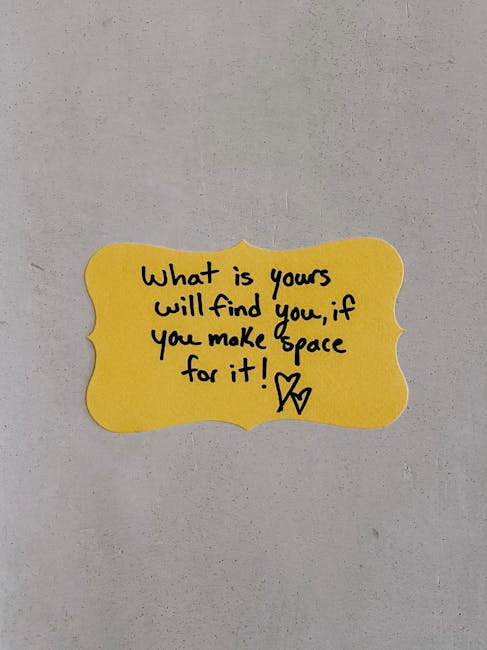 What is yours
will find you, if
you make space
for it!